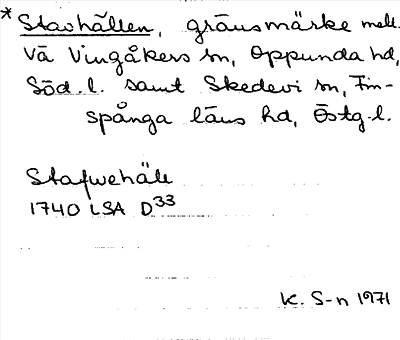 *Stavhällen, gränsmärke mell.
Vä Vingåkers sn, Oppunda hd,
Söd.l. samt Skedevi sn, Fin-
spånga läns hd, Östg.l.
Stafwehäle
1740 LSA D33
K. S-n 1971